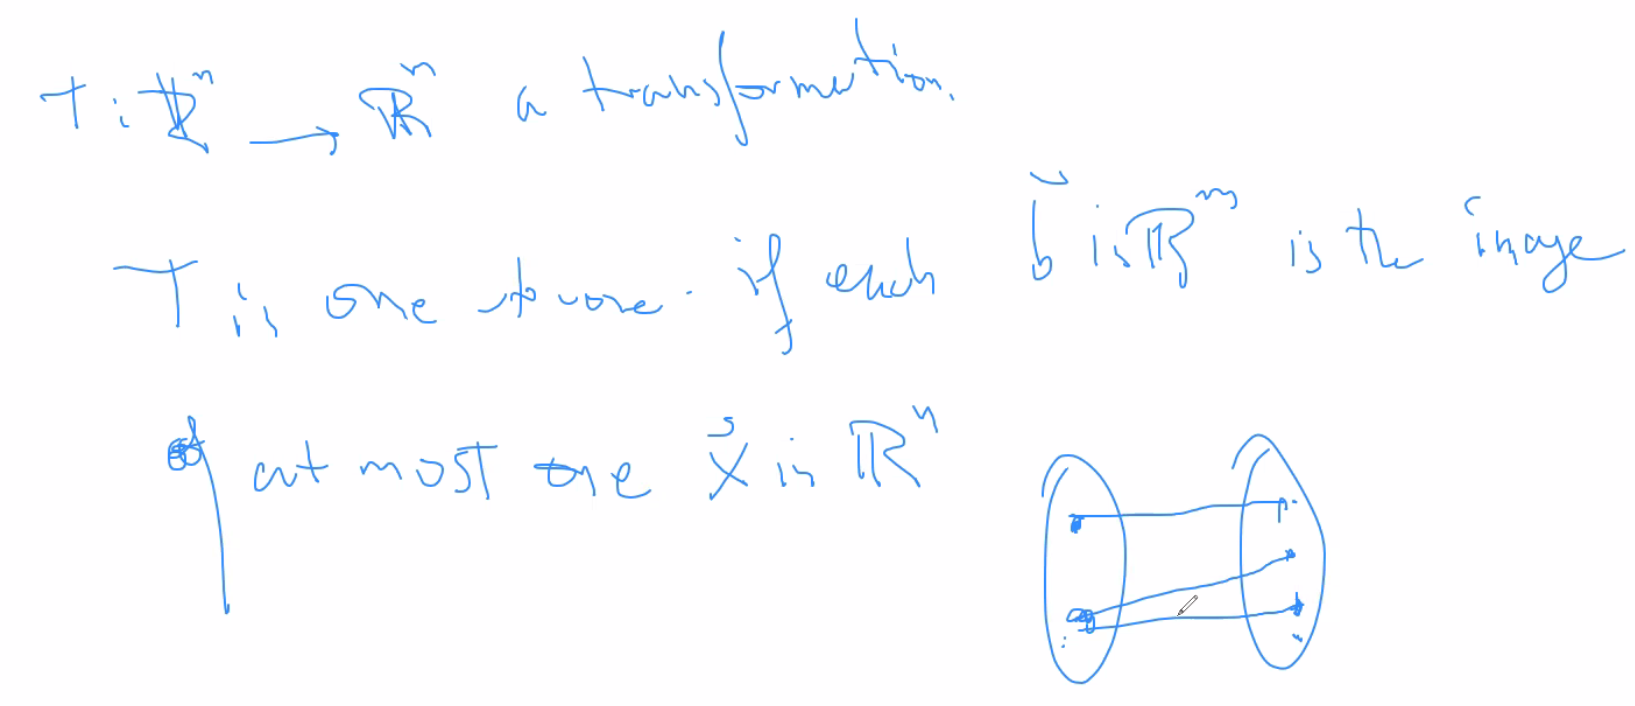 T : ℝⁿ → ℝⁿ a transformation.
T is one to one. if each b⃗ in ℝᵐ is the image
of at most one x⃗ in ℝⁿ